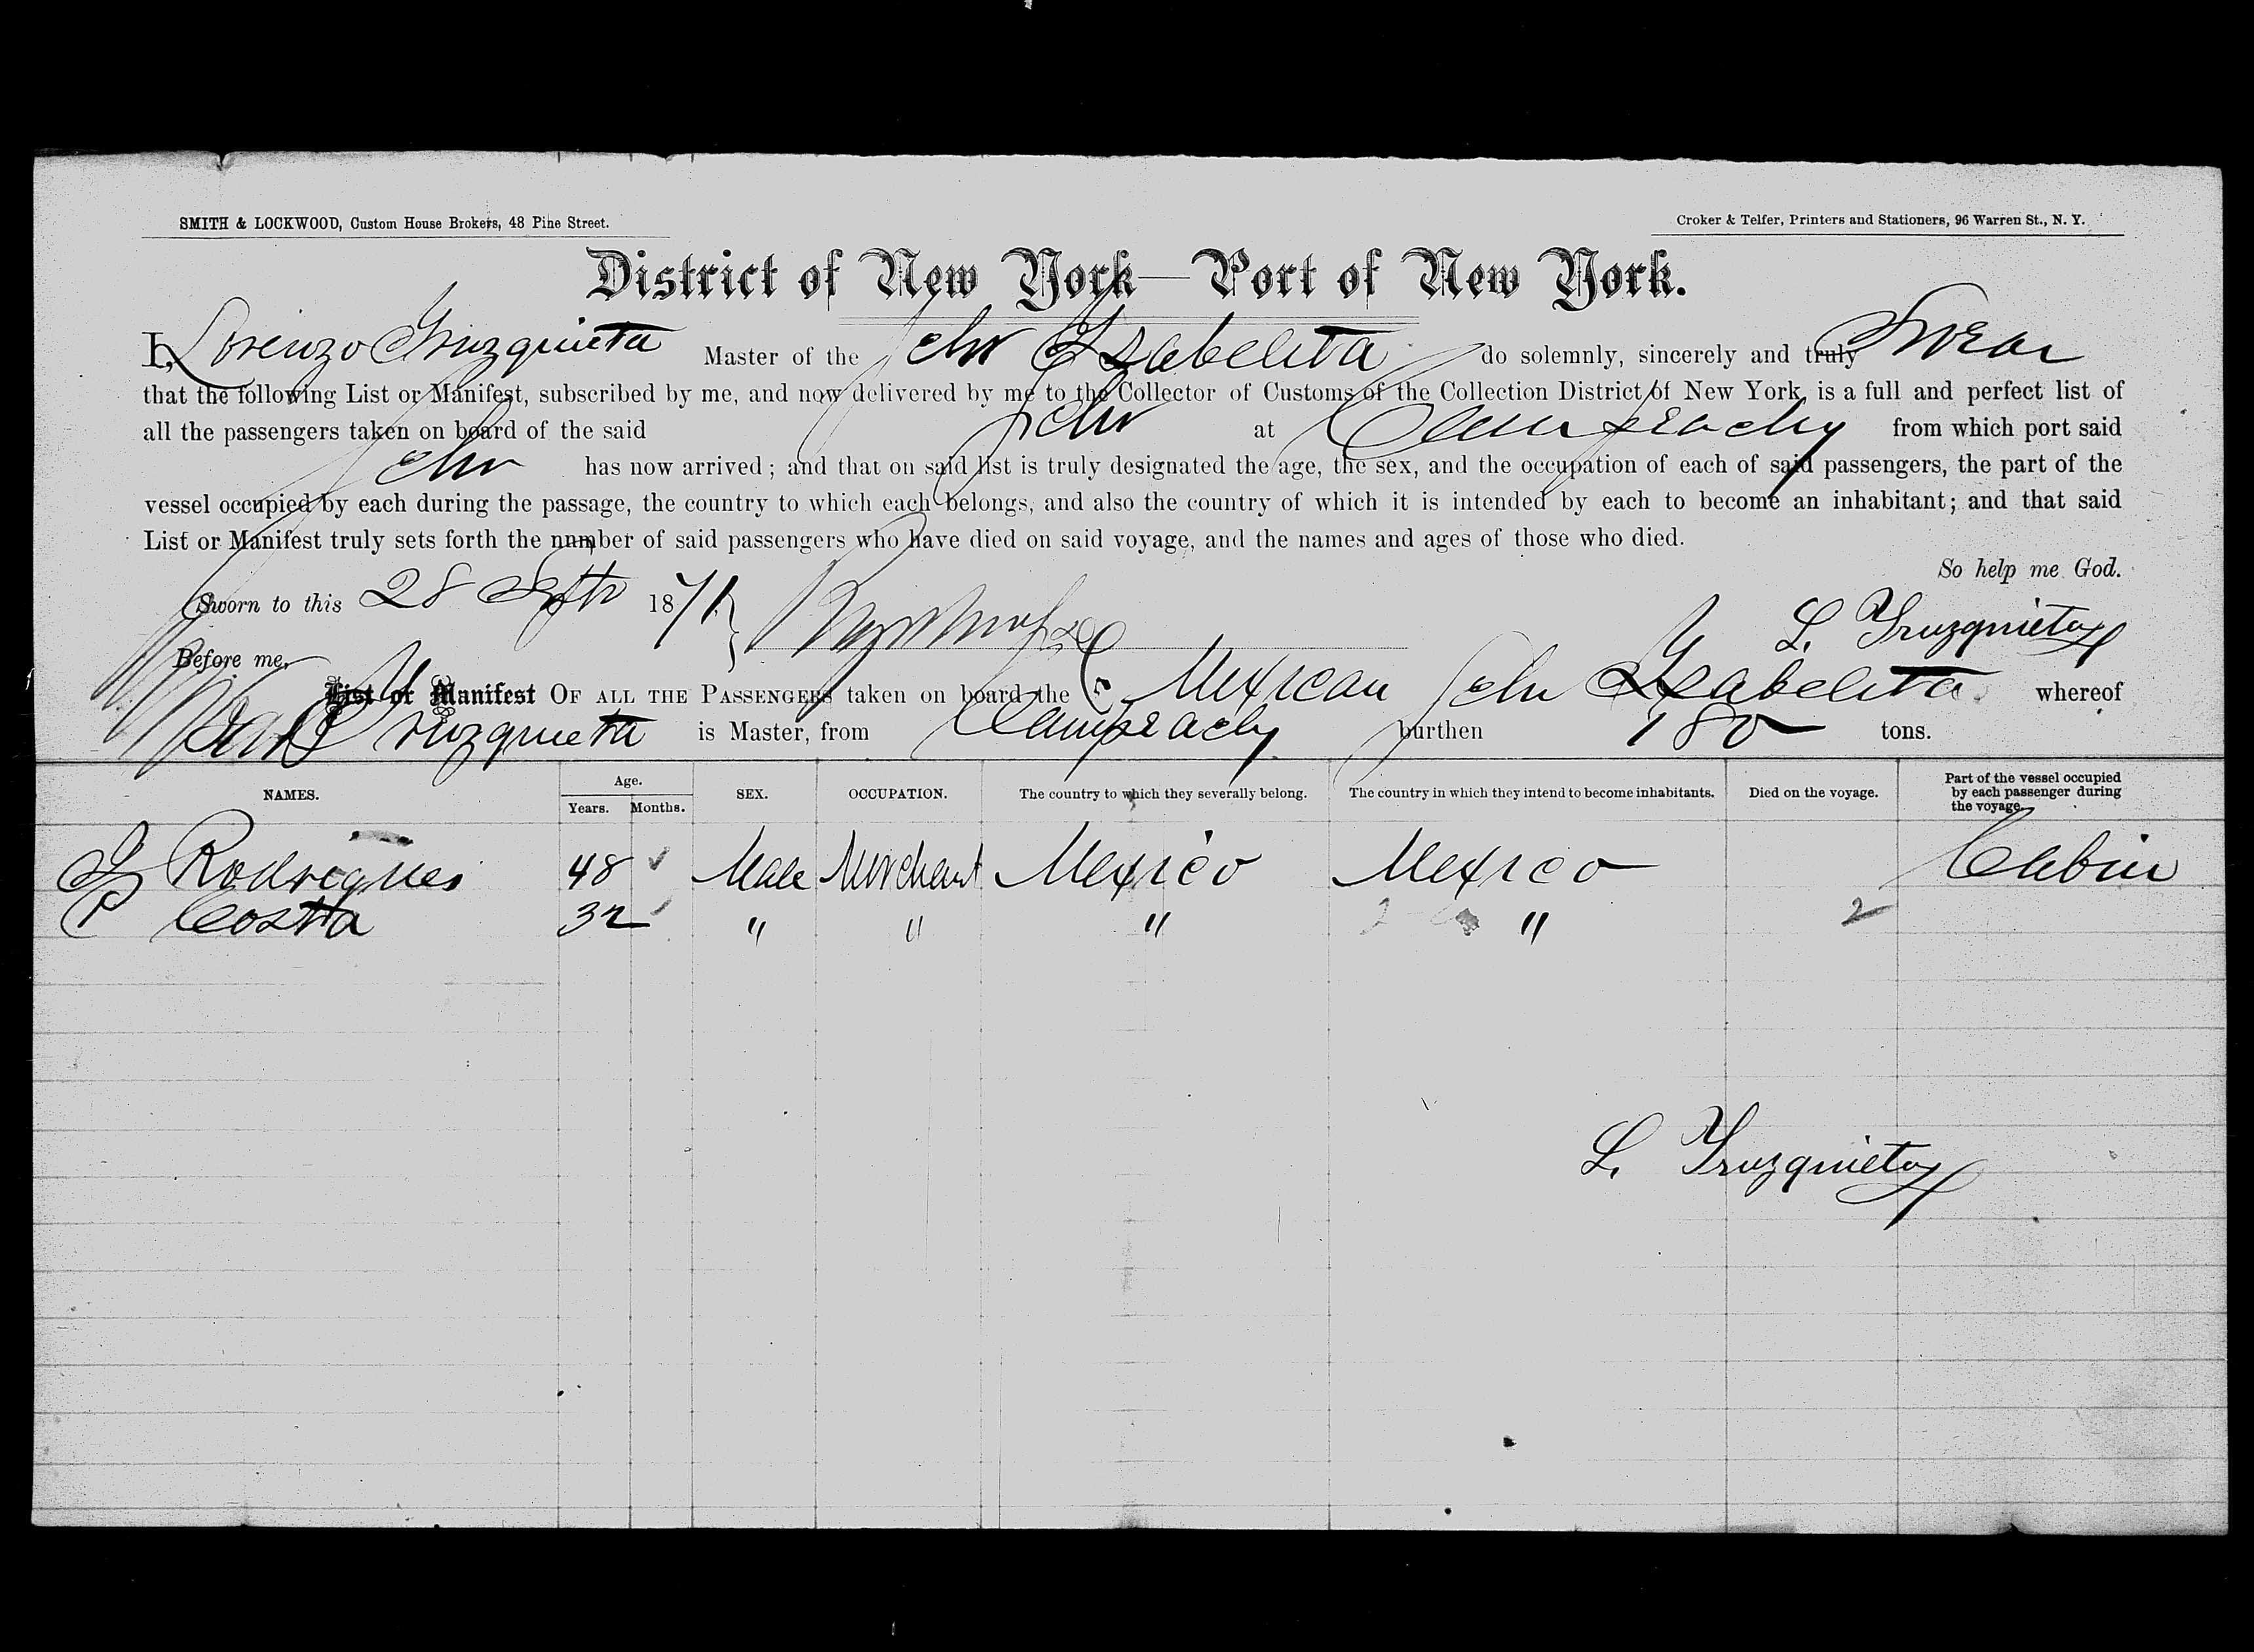 SMITH & LOCKWOOD, Custom House Brokers, 48 Pine Street.
Croker & Telfer, Printers and Stationers, 96 Warren St., N. Y.
District of New York—Port of New York.
I, Lorenzo Yruzquieta Master of the Schr Ysabelita do solemnly, sincerely and truly Swear
that the following List or Manifest, subscribed by me, and now delivered by me to the Collector of Customs of the Collection District of New York, is a full and perfect list of
all the passengers taken on board of the said Schr at Campeachy from which port said
Schr has now arrived; and that on said list is truly designated the age, the sex, and the occupation of each of said passengers, the part of the
vessel occupied by each during the passage, the country to which each belongs, and also the country of which it is intended by each to become an inhabitant; and that said
List or Manifest truly sets forth the number of said passengers who have died on said voyage, and the names and ages of those who died.
So help me God.
Sworn to this 28 Septr 1871
L. Yruzquieta
Before me,
List or Manifest OF ALL THE PASSENGERS taken on board the Mexican Schr Ysabelita whereof
Yruzquieta is Master, from Campeachy burthen 180 tons.
NAMES. Age. Years. Months. SEX. OCCUPATION. The country to which they severally belong. The country in which they intend to become inhabitants. Died on the voyage. Part of the vessel occupied by each passenger during the voyage.
Rodrigues 48 Male Merchant Mexico Mexico Cabin
P Costa 32 " " " " 2
L. Yruzquieta